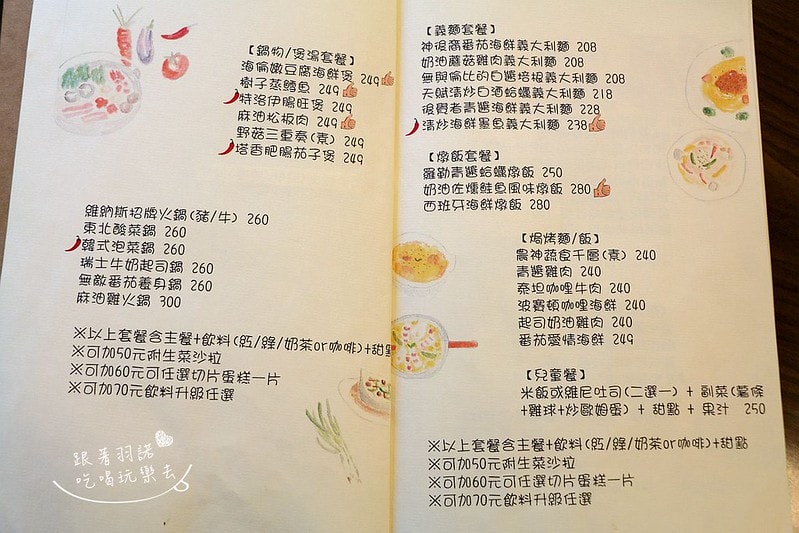 【鍋物/煲湯套餐】
海倫嫩豆腐海鮮煲 249
樹子蒸鱈魚 249
特洛伊腸旺煲 249
麻油松板肉 249
野菇三重奏(素) 249
塔香肥腸茄子煲 249
維納斯招牌火鍋(豬/牛) 260
東北酸菜鍋 260
韓式泡菜鍋 260
瑞士牛奶起司鍋 260
無敵番茄養身鍋 260
麻油雞火鍋 300
※以上套餐含主餐+飲料(紅/綠/奶茶or咖啡)+甜點
※可加50元附生菜沙拉
※可加60元可任選切片蛋糕一片
※可加70元飲料升級任選
跟著羽諾
吃喝玩樂去
【義麵套餐】
神很裔番茄海鮮義大利麵 208
奶油蘑菇雞肉義大利麵 208
無與倫比的白醬培根義大利麵 208
天賦清炒白酒蛤蠣義大利麵 218
很覺者青醬海鮮義大利麵 228
清炒海鮮墨魚義大利麵 238
【燉飯套餐】
羅勒青醬蛤蠣燉飯 250
奶油佐燻鮭魚風味燉飯 280
西班牙海鮮燉飯 280
【焗烤麵/飯】
農神蔬食千層(素) 240
青醬雞肉 240
泰坦咖哩牛肉 240
波賽頓咖哩海鮮 240
起司奶油雞肉 240
番茄愛情海鮮 249
【兒童餐】
米飯或維尼吐司(二選一) + 副菜(薯條
+雞球+炒歐姆蛋) + 甜點 + 果汁 250
※以上套餐含主餐+飲料(紅/綠/奶茶or咖啡)+甜點
※可加50元附生菜沙拉
※可加60元可任選切片蛋糕一片
※可加70元飲料升級任選